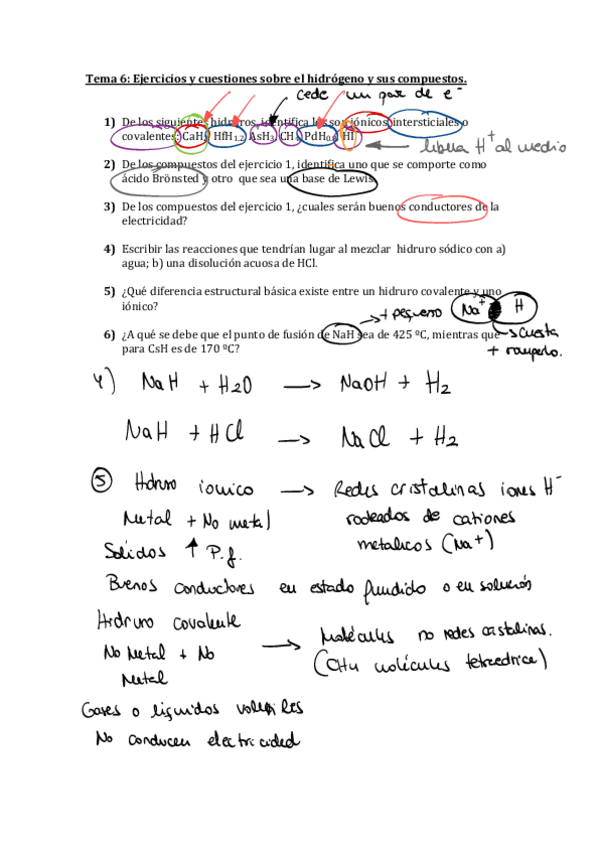 Tema 6: Ejercicios y cuestiones sobre el hidrógeno y sus compuestos.
cede un par de e⁻
1) De los siguientes hidruros, identifica los son iónicos, intersticiales o
covalentes: CaH₂, HfH₁.₂, AsH₃, CH₄, PdH₀.₆, HI
libera H⁺ al medio
2) De los compuestos del ejercicio 1, identifica uno que se comporte como
ácido Brönsted y otro que sea una base de Lewis.
3) De los compuestos del ejercicio 1, ¿cuales serán buenos conductores de la
electricidad?
4) Escribir las reacciones que tendrían lugar al mezclar hidruro sódico con a)
agua; b) una disolución acuosa de HCl.
5) ¿Qué diferencia estructural básica existe entre un hidruro covalente y uno
iónico?
+ pequeño Na⁺ H
6) ¿A qué se debe que el punto de fusión de NaH sea de 425 ºC, mientras que
para CsH es de 170 ºC?
→ cuesta
+ romperlo.
4) NaH + H2O → NaOH + H2
NaH + HCl → NaCl + H2
5 Hdruro ionico → Redes cristalinas iones H⁻
Metal + No metal rodeados de cationes
Sólidos ↑ P.f. metalicos (Na⁺)
Buenos conductores en estado fundido o en solución
Hidruro covalente
No Metal + No → Moléculas no redes cristalinas.
Metal (CH4 moléculas tetraedrica)
Gases o liquidos volatiles
No conducen electricidad